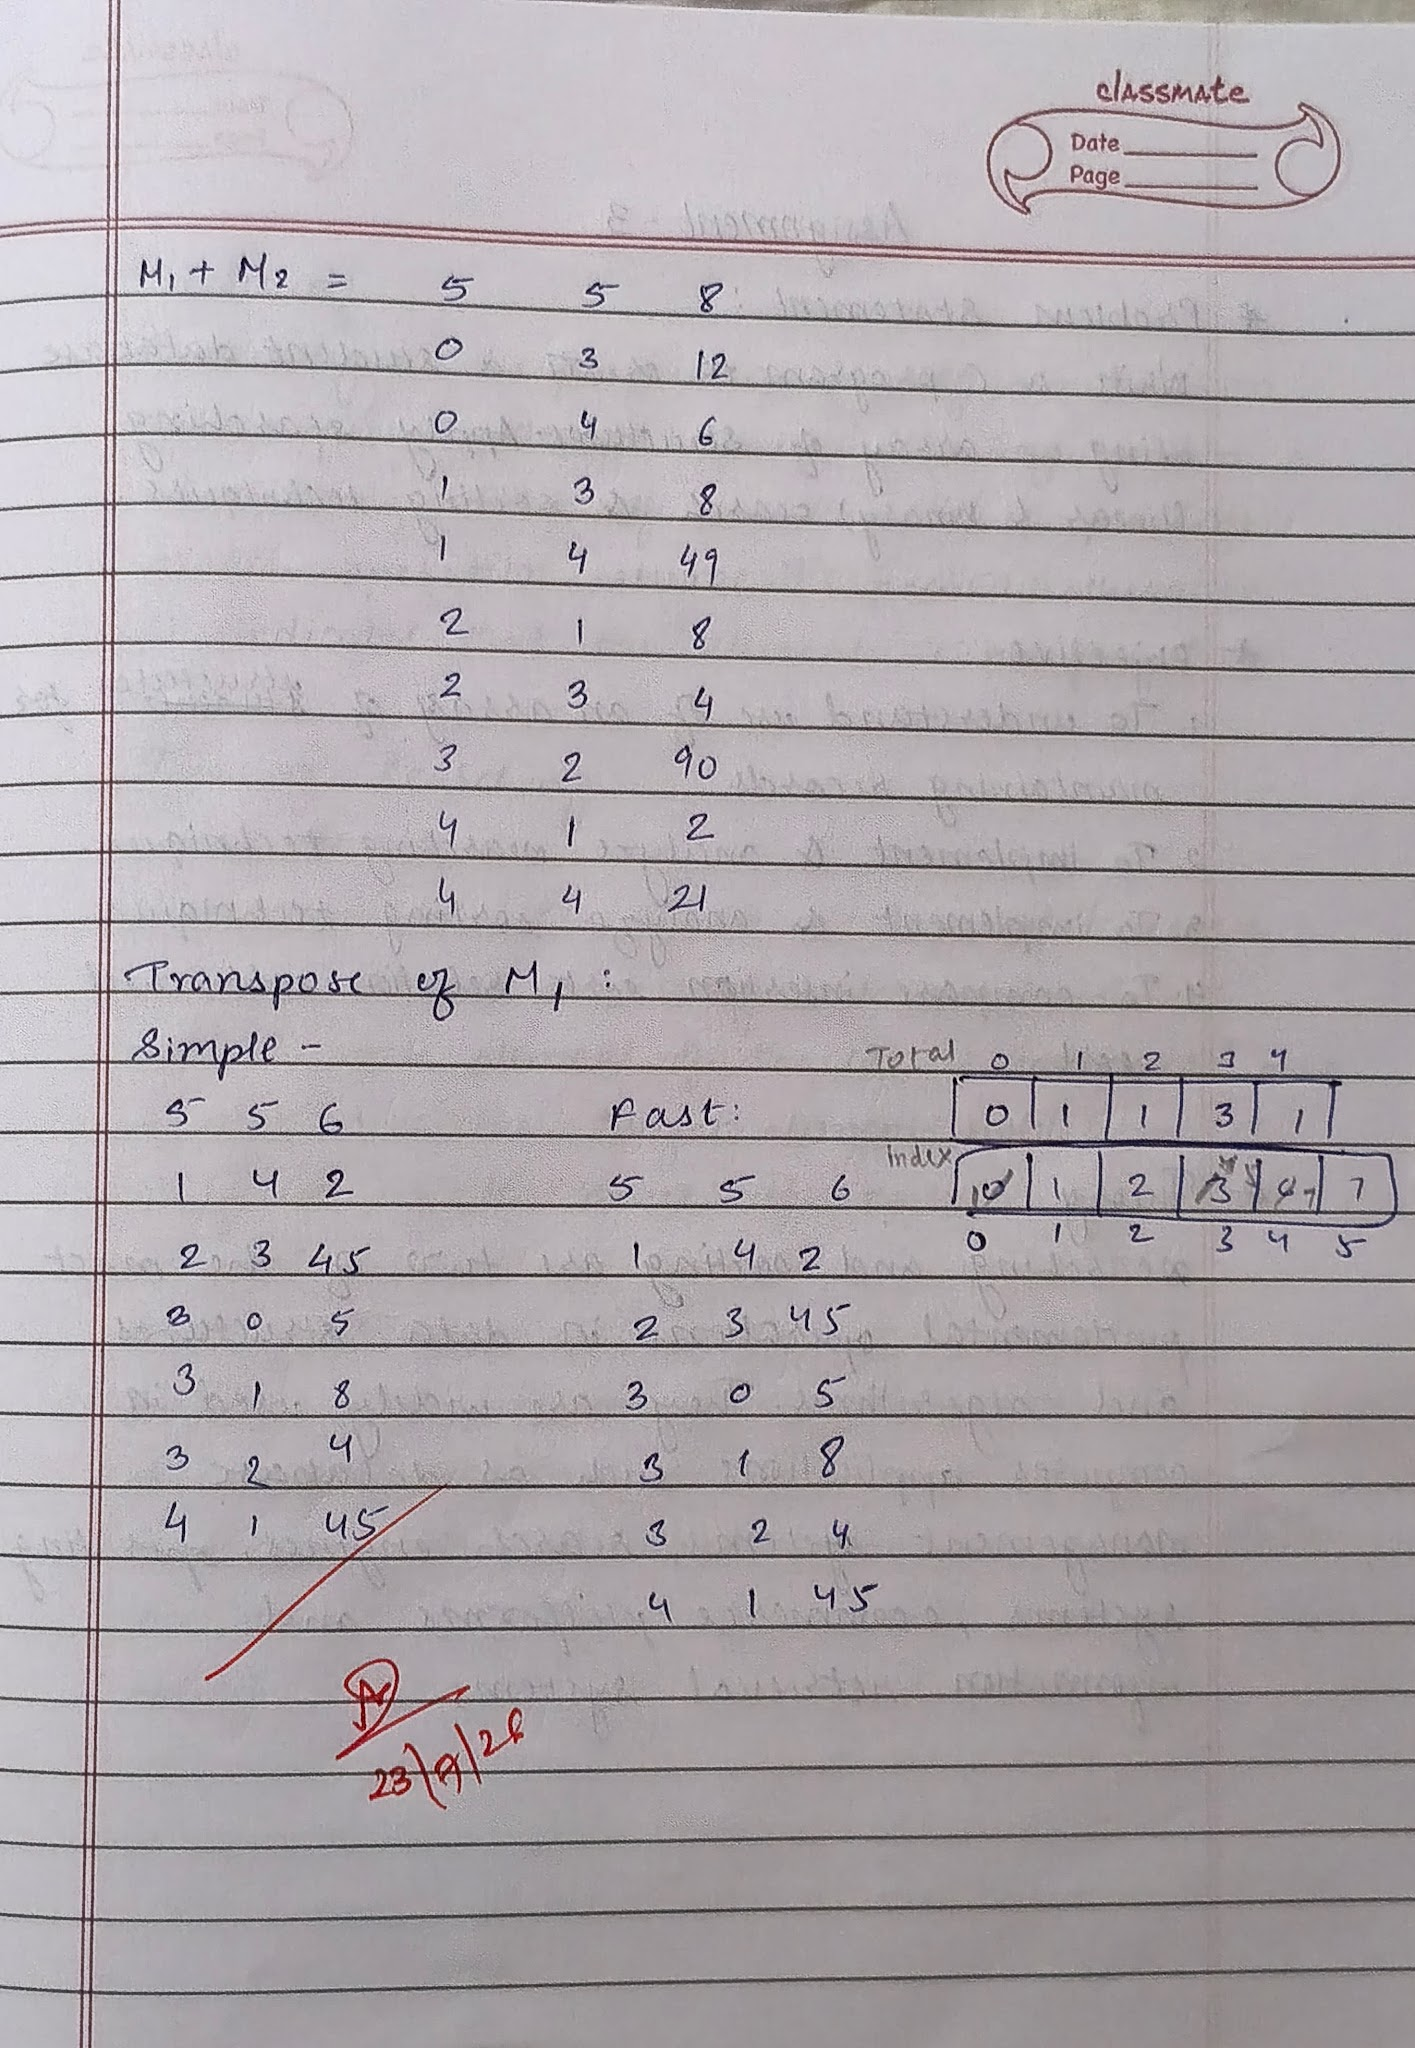 classmate
Date
Page
M1 + M2 = 5 5 8
0 3 12
0 4 6
1 3 8
1 4 49
2 1 8
2 3 4
3 2 90
4 1 2
4 4 21
Transpose of M1 :
Simple -
5 5 6
1 4 2
2 3 45
3 0 5
3 1 8
3 2 4
4 1 45
Fast:
5 5 6
1 4 2
2 3 45
3 0 5
3 1 8
3 2 4
4 1 45
Total 0 1 2 3 4
0 1 1 3 1
Index 1 2 3 7
0 1 2 3 4 5